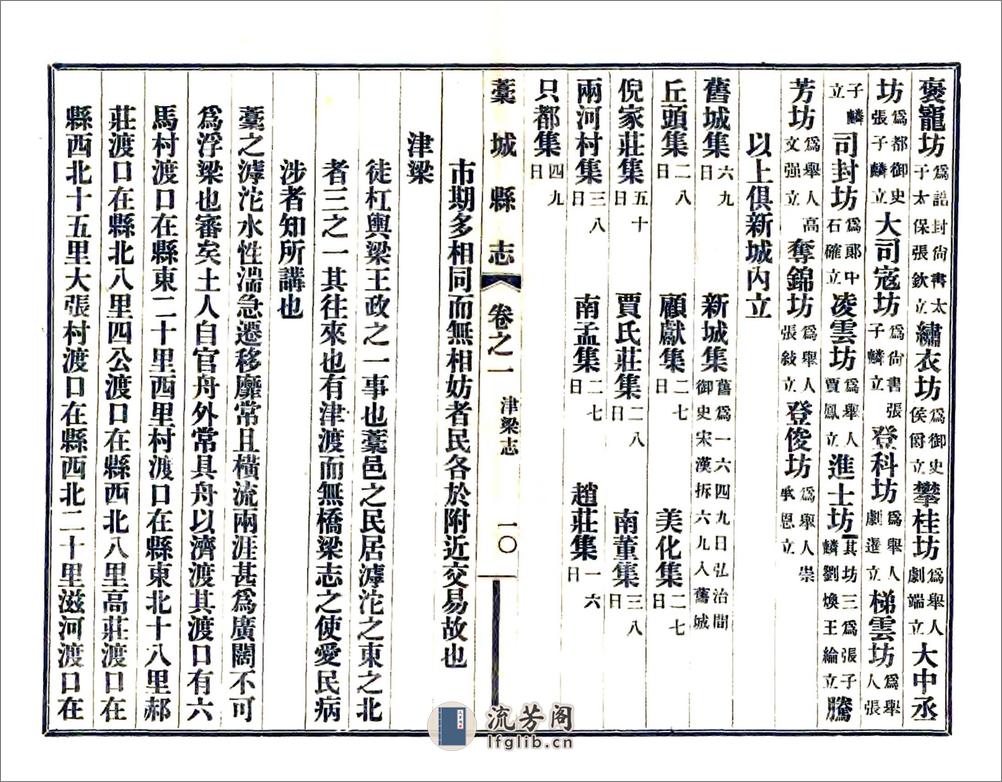 褒寵坊爲誥封尚書太子太保張欽立繡衣坊爲御史侯爵立攀桂坊爲舉人劇端立大中丞
坊爲都御史張子麟立大司寇坊爲尚書張子麟立登科坊爲舉人劇暹立梯雲坊爲舉人張
子麟立司封坊爲郎中石確立凌雲坊爲舉人賈鳳立進士坊其坊三爲張子麟劉煥王綸立騰
芳坊爲舉人高文强立奪錦坊爲舉人張敍立登俊坊爲舉人崇承恩立
以上俱新城內立
舊城集六九日 新城集舊爲一六四九日弘治間御史宋漢拆六九入舊城
丘頭集二八日 顧獻集二七日 美化集二七日
倪家莊集五十日 賈氏莊集二八日 南董集三八日
兩河村集三八日 南孟集二七日 趙莊集一六日
只都集四九日
藁城縣志 卷之一 津梁志 一〇
市期多相同而無相妨者民各於附近交易故也
津梁
徒杠輿梁王政之一事也藁邑之民居滹沱之東之北
者三之一其往來也有津渡而無橋梁志之使愛民病
涉者知所講也
藁之滹沱水性湍急遷移靡常且橫流兩涯甚爲廣闊不可
爲浮梁也審矣土人自官舟外常具舟以濟渡其渡口有六
馬村渡口在縣東二十里西里村渡口在縣東北十八里郝
莊渡口在縣北八里四公渡口在縣西北八里高莊渡口在
縣西北十五里大張村渡口在縣西北二十里滋河渡口在
流芳阁
lfglib.cn